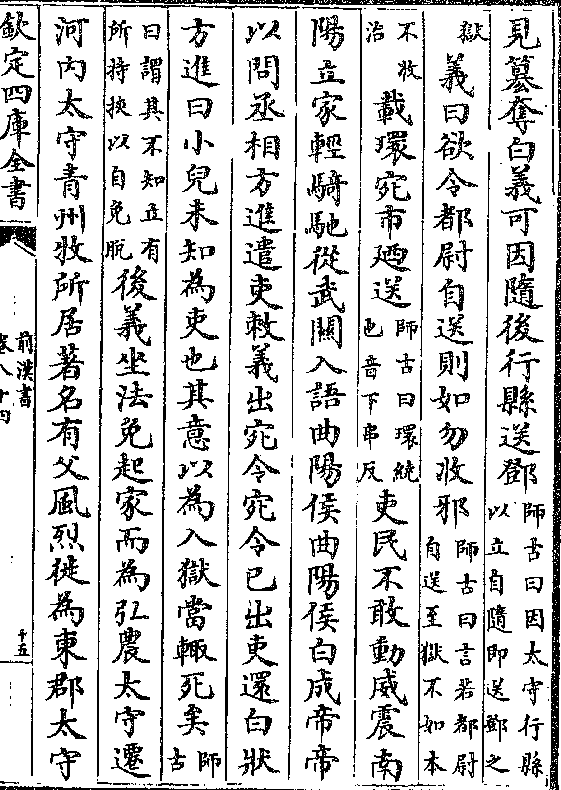 見篡奪白義可因隨後行縣送鄧師古曰因太守行縣以立自隨即送鄧之
獄義曰欲令都尉自送則如勿收邪師古曰言若都尉自送至獄不如本
不收治載環宛市廼送師古曰環繞也音下串反吏民不敢動威震南
陽立家輕騎馳從武關入語曲陽侯曲陽侯白成帝帝
以問丞相方進遣吏敕義出宛令宛令已出吏還白狀
方進曰小兒未知為吏也其意以為入獄當輒死矣師古
曰謂其不知立有所持挾以自免脫後義坐法免起家而為弘農太守遷
河內太守青州牧所居著名有父風烈徙為東郡太守
欽定四庫全書
前漢書
卷八十四
十五